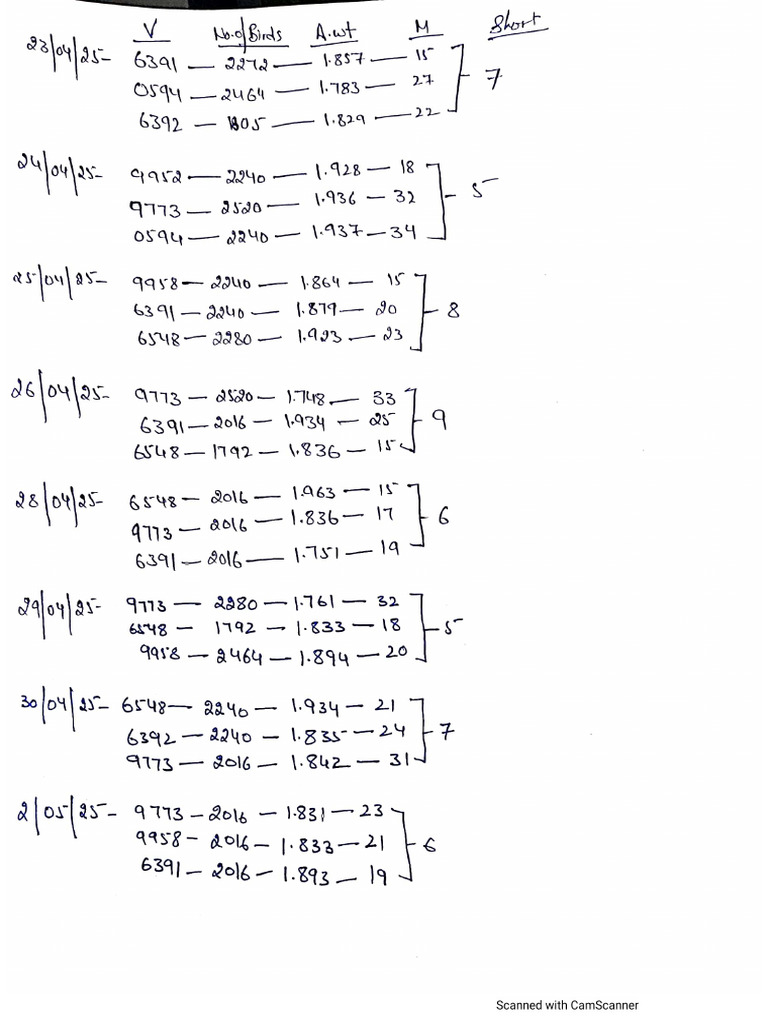 V No. of Birds A.wt M Short
23/04/25- 6391 — 2272 — 1.857 — 15
0594 — 2464 — 1.783 — 27 7
6392 — — 1.829 — 22
24/04/25- 9952 — 2240 — 1.928 — 18
9773 — 2520 — 1.936 — 32 5
0594 — 2240 — 1.937 — 34
25/04/25- 9958 — 2240 — 1.864 — 15
6391 — 2240 — 1.879 — 20 8
6548 — 2280 — 1.923 — 23
26/04/25- 9773 — 2520 — 1.748 — 33
6391 — 2016 — 1.934 — 25 9
6548 — 1792 — 1.836 — 15
28/04/25- 6548 — 2016 — 1.963 — 15
9773 — 2016 — 1.836 — 17 6
6391 — 2016 — 1.751 — 19
29/04/25- 9773 — 2280 — 1.761 — 32
6548 — 1792 — 1.833 — 18 5
9958 — 2464 — 1.894 — 20
30/04/25- 6548 — 2240 — 1.934 — 21
6392 — 2240 — 1.835 — 24 7
9773 — 2016 — 1.842 — 31
2/05/25- 9773 — 2016 — 1.831 — 23
9958 — 2016 — 1.833 — 21 6
6391 — 2016 — 1.893 — 19
Scanned with CamScanner